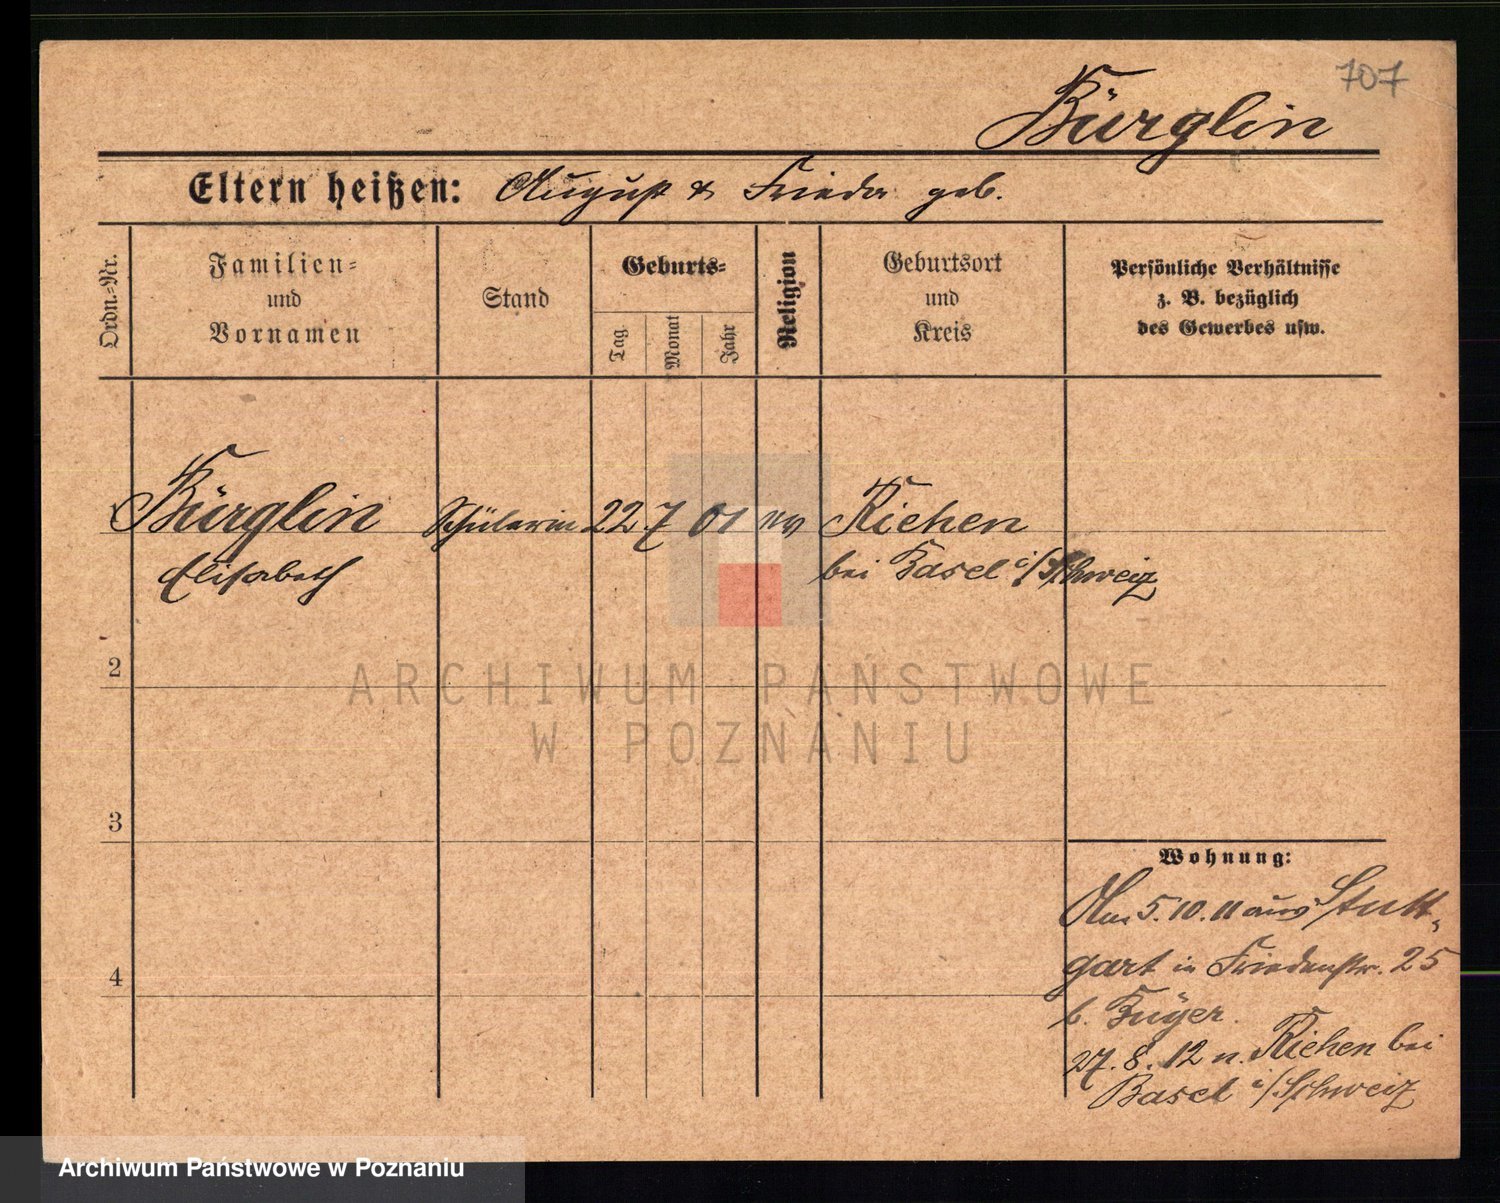 707
Bürglin
Eltern heißen: August & Frieda geb.
Ordn.-Nr.
Familien-
und
Vornamen
Stand
Geburts-
Tag
Monat
Jahr
Religion
Geburtsort
und
Kreis
Persönliche Verhältnisse
z. B. bezüglich
des Gewerbes usw.
Bürglin Schülerin 22 7 01 ev Riehen
Elisabeth bei Basel i/Schweiz
2
3
4
Wohnung:
5.10.11 aus Stutt-
gart in Friedenstr. 25
b.
27.8.12 n. Riehen bei
Basel i/Schweiz
ARCHIWUM PAŃSTWOWE
W POZNANIU
Archiwum Państwowe w Poznaniu